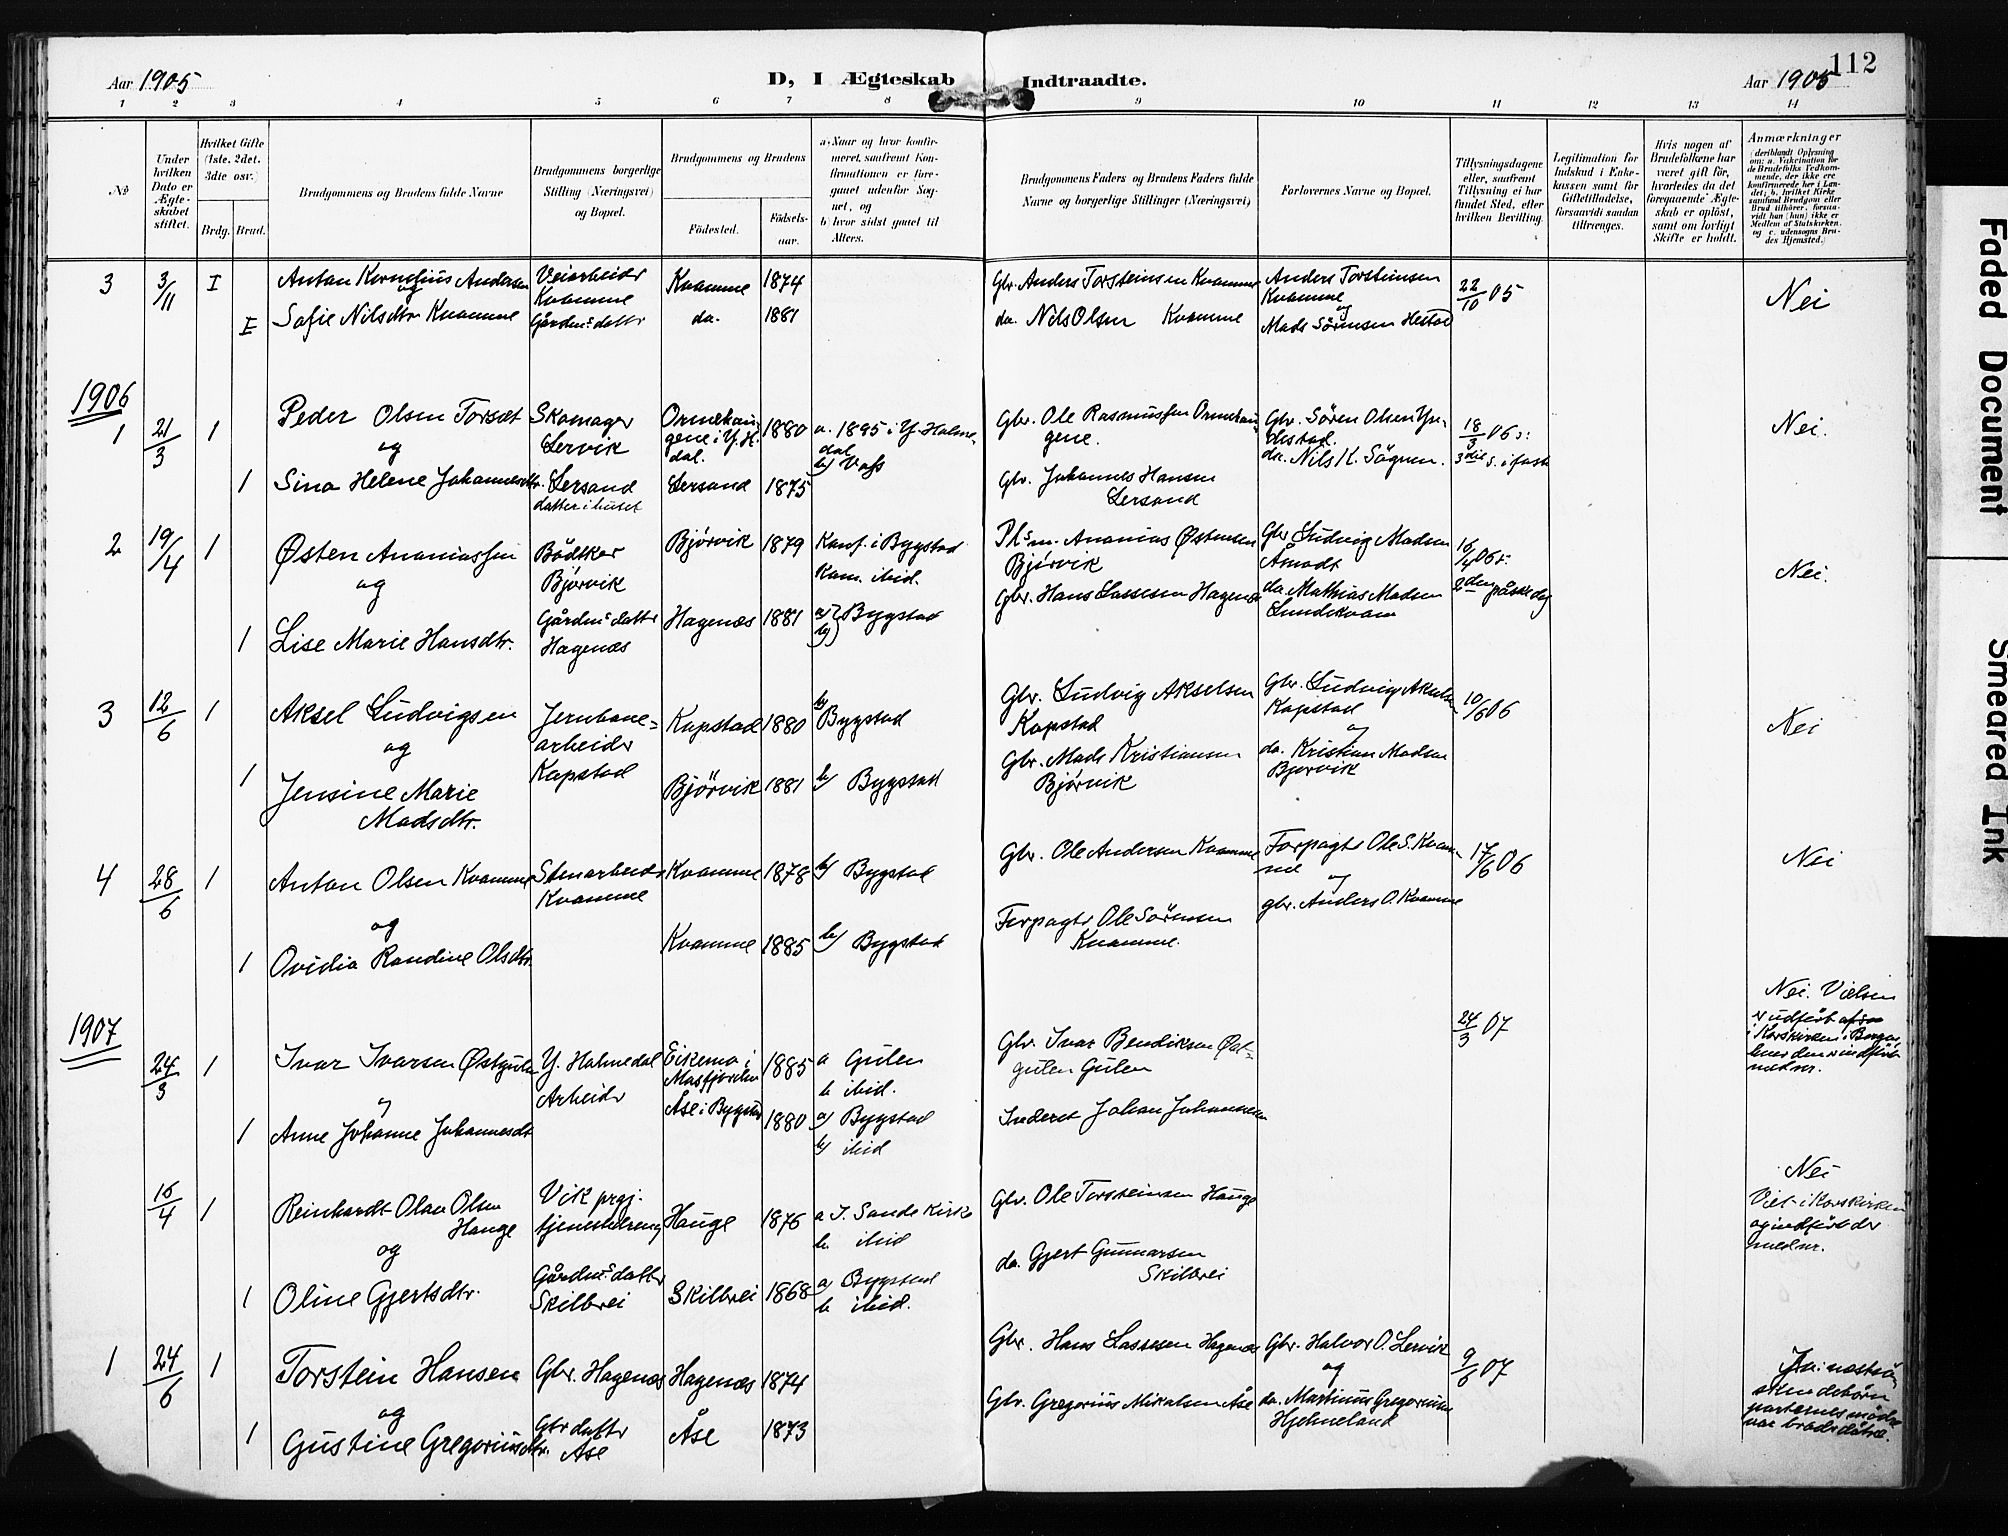 112
Aar 1905
D, I Ægteskab Indtraadte.
Aar 1905
1 2 3 4 5 6 7 8 9 10 11 12 13 14
No
Under hvilken Dato er Ægteskabet stiftet.
Hvilket Gifte (1ste, 2det, 3die osv.)
Brdg. Brud.
Brudgommens og Brudens fulde Navne
Brudgommens borgerlige Stilling (Næringsvei) og Bopæl.
Brudgommens og Brudens
Födested.
Födselsaar.
a, Naar og hvor konfirmeret, saafremt Konfirmationen er foregaaet udenfor Sognet, og
b) hvor sidst gaaet til Alters.
Brudgommens Faders og Brudens Faders fulde Navne og borgerlige Stillinger (Næringsvei)
Forlovernes Navne og Bopæl.
Tillysningsdagene eller, saafremt Tillysning ei har fundet Sted, efter hvilken Bevilling.
Legitimation for Indskud i Enkekassen samt for Giftetilladelse, forsaavidt saadan tiltrænges.
Hvis nogen af Brudefolkene har været gift för, hvorledes da det foregaaende Ægteskab er oplöst, samt om lovligt Skifte er holdt.
Anmærkninger
(deriblandt Oplysning om: a. Vakcination for de Brudefolks Vedkommende, der ikke ere konfirmerede her i Landet; b. hvilket Kirkesamfund Brudgom eller Brud tilhörer, forsaavidt han (hun) ikke er Medlem af Statskirken, og c. udensogns Brudes Hjemsted.)
3 3/11 I Anton Kornelius Andersen Veiarbeider Kvamme Kvamme 1874 Gbr. Anders Torsteinsen Kvamme Anders Torsteinsen Kvamme 22/10 05 Nei
og
I Sofie Nilsdtr. Kvamme Gårdms datter do. 1881 do. Nils Olsen Kvamme og Mads Sörensen Hestad
1906
1 21/3 1 Peder Olsen Torsæt Skomager Lervik Ormehaugene i Y. H.dal. 1880 a. 1895 i Y. Holmedal b) Voss Gbr. Ole Rasmussen Ormehaugene. Gbr. Sören Olsen Yndestad. 18/3 06 Nei.
og
1 Sina Helene Johannesdtr. Lersand datter i huset Lersand 1875 Gbr. Johannes Hansen Lersand do. Nils K. Sögnen. 3die s. i faste
2 19/4 1 Østen Ananiassen Bödtker Bjørvik Bjørvik 1879 Konf. i Bygstad Kom. ibid. Plsm. Ananias Østensen Bjørvik Gbr Ludvig Madsen Åmodt 16/4 06 Nei.
og
1 Lise Marie Hansdtr. Gårdms datter Hagenæs Hagenæs 1881 a) b) Bygstad Gbr. Hans Lassesen Hagenæs do Mathias Madsen Lundekvam 2den påskedag
3 12/6 1 Aksel Ludvigsen Jernbanearbeider Kapstad Kapstad 1880 b) Bygstad Gbr. Ludvig Akselsen Kapstad Gbr. Ludvig Akselsen Kapstad 10/6 06 Nei
og
1 Jensine Marie Madsdtr. Bjørvik 1881 b) Bygstad Gbr. Mads Kristiansen Bjørvik og do. Kristian Madsen Bjørvik
4 28/6 1 Anton Olsen Kvamme Stenarbeider Kvamme Kvamme 1878 b) Bygstad Gbr. Ole Andersen Kvamme Forpagter Ole S. Kvamme 17/6 06 Nei
og
1 Ovidia Randine Olsdtr. Kvamme 1885 b) Bygstad Forpagter Ole Sörensen Kvamme. og gbr. Anders O. Kvamme
1907
24/3 1 Ivar Ivarsen Østgulen Y. Holmedal Arbeider Eikemo i Masfjorden 1885 a Gulen b. ibid. Gbr. Ivar Bendiksen Østgulen Gulen 24/3 07 Nei. Vielsen er udført i Korskirken i Bergen, hvor den er indført med nr.
og
1 Anne Johanne Johannesdt Åse i Bygstad 1880 a) Bygstad b) ibid Inderst Johan Johannesen
16/4 1 Reinhardt Olan Olsen Hauge Vik prgj. tjenestedreng Hauge 1876 a I. Sande Kirke b. ibid Gbr. Ole Torsteinsen Hauge Nei Viet i Korskirken og indført der med nr.
og
1 Oline Gjertsdtr. Gårdms datter Skilbrei Skilbrei 1868 a Bygstad b. ibid. do. Gjert Gunnarsen Skilbrei
1 24/6 1 Torstein Hansen Gbr. Hagenæs Hagenæs 1874 Gbr. Hans Lassesen Hagenæs Gbr. Halvor O. Lervik 9/6 07 Ja: næstsöskendebörn parternes mödre var brødredötre.
og
1 Gustine Gregoriusdtr. Gbr datter Åse Åse 1873 Gbr. Gregorius Mikalsen Åse og do. Martinus Gregoriusen Hjelmeland
Faded Document
Smeared Ink